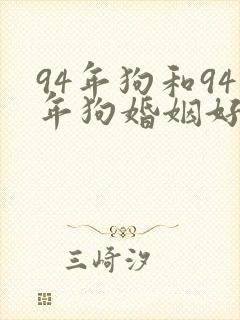 94年狗和94
年狗婚姻好
三崎汐